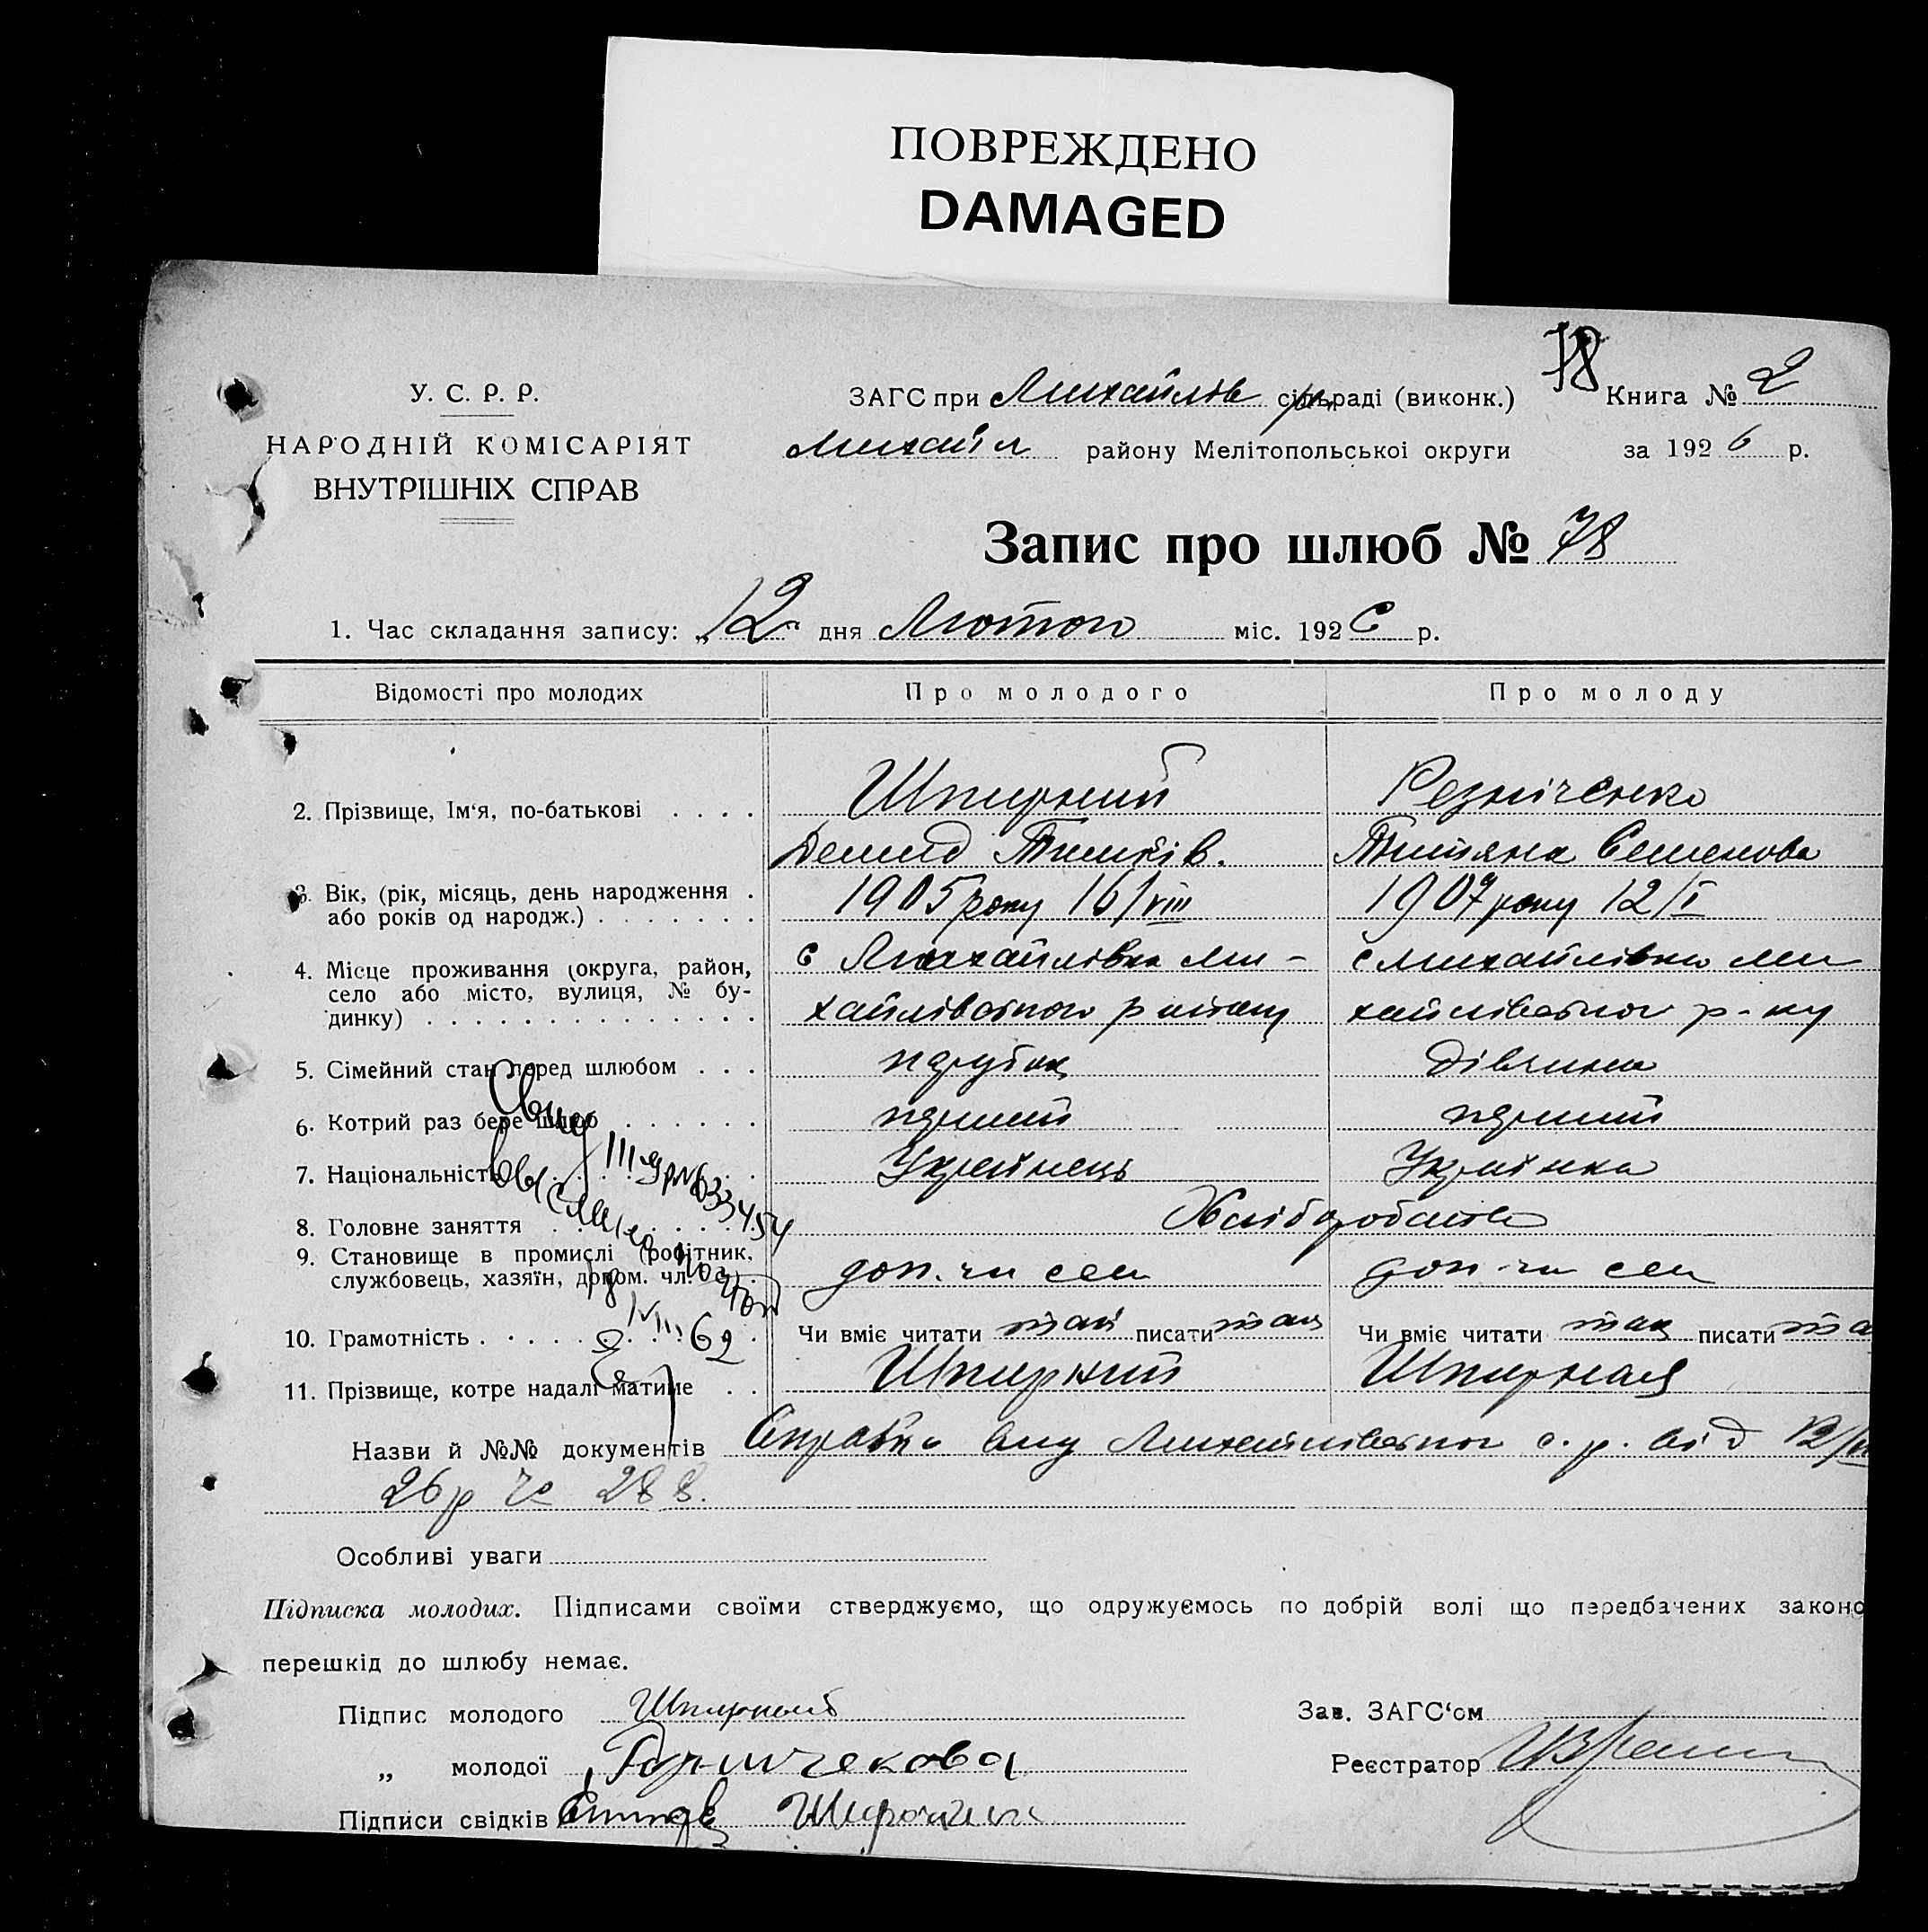 ПОВРЕЖДЕНО
DAMAGED
78
У. С. Р. Р.
НАРОДНІЙ КОМІСАРІЯТ
ВНУТРІШНІХ СПРАВ
ЗАГС при Михайлів сільраді (виконк.)
Книга № 2
Михайл району Мелітопольської округи
за 1926 р.
Запис про шлюб № 78
1. Час складання запису: „12“ дня Лютого міс. 1926 р.
Відомості про молодих Про молодого Про молоду
2. Прізвище, Ім'я, по-батькові . . . . Шпирний Резніченко
Демид Тимків. Титяна Семенова
3. Вік, (рік, місяць, день народження . 1905 року 16/VIII 1907 року 12/I
або років од народж.) . . . . . . .
4. Місце проживання (округа, район, с Михайлівка Ми- с Михайлівка Ми
село або місто, вулиця, № бу- хайлівського району хайлівського р-ну
динку) . . . . . . . . . . . . . .
5. Сімейний стан перед шлюбом . . . парубок дівчина
6. Котрий раз бере шлюб . . . . . . перший перший
7. Національність . . . . . Українець Українка
8. Головне заняття . . . . . Хліборобство
9. Становище в промислі (робітник,
службовець, хазяїн, допом. чл. доп. чл сем доп. чл сем
10. Грамотність . . . . . Чи вміє читати так писати так Чи вміє читати так писати та
11. Прізвище, котре надалі матиме . . Шпирний Шпирная
Назви й №№ документів Справка Михайлівського с.р. від 12/II
26 р № 288.
Особливі уваги
Підписка молодих. Підписами своїми стверджуємо, що одружуємось по добрій волі що передбачених законо
перешкід до шлюбу немає.
Підпис молодого Шпирный
Зав. ЗАГС'ом
„ молодої
Реєстратор
Підписи свідків